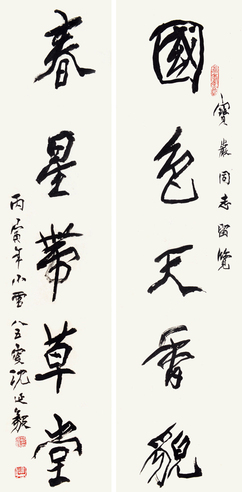 國色天香貌
寶嚴同志留覽
春星帶草堂
丙寅年小雪 八五叟沈延毅